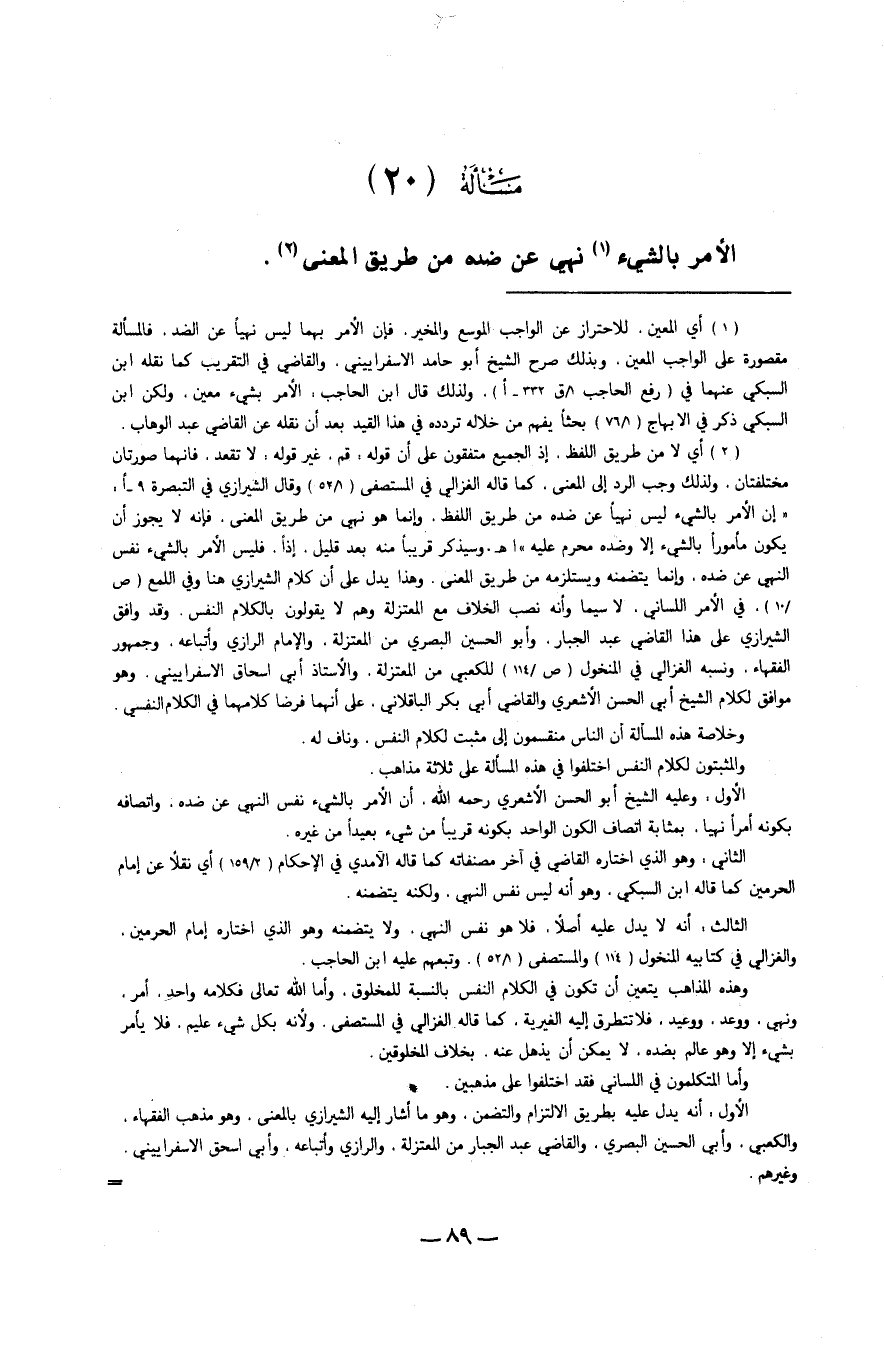 مسألة (٢٠)
الأمر بالشيء (١) نهي عن ضده من طريق المعنى (٢) .
(١) أي المعين . للاحتراز عن الواجب الموسع والمخير . فإن الأمر بهما ليس نهياً عن الضد . فالمسألة
مقصورة على الواجب المعين . وبذلك صرح الشيخ أبو حامد الاسفراييني . والقاضي في التقريب كما نقله ابن
السبكي عنهما في ( رفع الحاجب ١/ق ٣٣٢ - أ ) . ولذلك قال ابن الحاجب : الأمر بشيء معين . ولكن ابن
السبكي ذكر في الابهاج ( ٧٦/١ ) بحثاً يفهم من خلاله تردده في هذا القيد بعد أن نقله عن القاضي عبد الوهاب .
(٢) أي لا من طريق اللفظ . إذ الجميع متفقون على أن قوله : قم . غير قوله : لا تقعد . فانهما صورتان
مختلفتان . ولذلك وجب الرد إلى المعنى . كما قاله الغزالي في المستصفى ( ٥٢/١ ) وقال الشيرازي في التبصرة ٩ - أ :
« إن الأمر بالشيء ليس نهياً عن ضده من طريق اللفظ . وإنما هو نهي من طريق المعنى . فإنه لا يجوز أن
يكون مأموراً بالشيء إلا وضده محرم عليه » ا هـ . وسيذكر قريباً منه بعد قليل . إذاً . فليس الأمر بالشيء نفس
النهي عن ضده . وإنما يتضمنه ويستلزمه من طريق المعنى . وهذا يدل على أن كلام الشيرازي هنا وفي اللمع ( ص
/١٠ ) . في الأمر اللساني . لا سيما وأنه نصب الخلاف مع المعتزلة وهم لا يقولون بالكلام النفس . وقد وافق
الشيرازي على هذا القاضي عبد الجبار . وأبو الحسين البصري من المعتزلة . والإمام الرازي وأتباعه . وجمهور
الفقهاء . ونسبه الغزالي في المنخول ( ص /١١٤ ) للكعبي من المعتزلة . والأستاذ أبي اسحاق الاسفراييني . وهو
موافق لكلام الشيخ أبي الحسن الأشعري والقاضي أبي بكر الباقلاني . على أنهما فرضا كلامهما في الكلام النفسي .
وخلاصة هذه المسألة أن الناس منقسمون إلى مثبت لكلام النفس . وناف له .
والمثبتون لكلام النفس اختلفوا في هذه المسألة على ثلاثة مذاهب .
الأول : وعليه الشيخ أبو الحسن الأشعري رحمه الله . أن الأمر بالشيء نفس النهي عن ضده . واتصافه
بكونه أمراً نهيا . بمثابة اتصاف الكون الواحد بكونه قريباً من شيء بعيداً من غيره .
الثاني : وهو الذي اختاره القاضي في آخر مصنفاته كما قاله الآمدي في الإحكام ( ١٥٩/٢ ) أي نقلاً عن إمام
الحرمين كما قاله ابن السبكي . وهو أنه ليس نفس النهي . ولكنه يتضمنه .
الثالث : أنه لا يدل عليه أصلاً . فلا هو نفس النهي . ولا يتضمنه وهو الذي اختاره إمام الحرمين .
والغزالي في كتابيه المنخول ( ١١٤ ) والمستصفى ( ٥٢/١ ) . وتبعهم عليه ابن الحاجب .
وهذه المذاهب يتعين أن تكون في الكلام النفس بالنسبة للمخلوق . وأما الله تعالى فكلامه واحد . أمر .
ونهي . ووعد . ووعيد . فلا تتطرق إليه الغيرية . كما قاله الغزالي في المستصفى . ولأنه بكل شيء عليم . فلا يأمر
بشيء إلا وهو عالم بضده . لا يمكن أن يذهل عنه . بخلاف المخلوقين .
وأما المتكلمون في اللساني فقد اختلفوا على مذهبين .
الأول : أنه يدل عليه بطريق الالتزام والتضمن . وهو ما أشار إليه الشيرازي بالمعنى . وهو مذهب الفقهاء .
والكعبي . وأبي الحسين البصري . والقاضي عبد الجبار من المعتزلة . والرازي وأتباعه . وأبي اسحق الاسفراييني .
وغيرهم .
=
— ٨٩ —